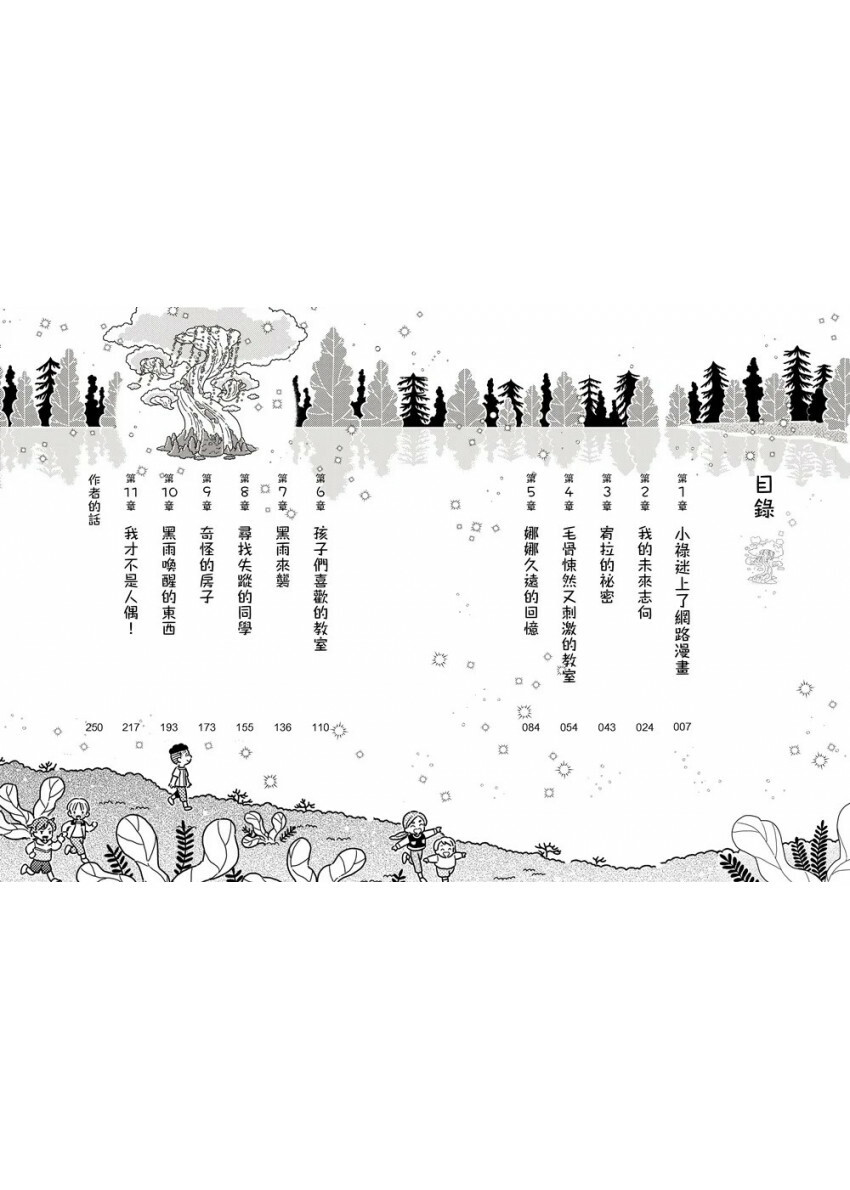 目錄
第1章 小祿迷上了網路漫畫 007
第2章 我的未來志向 024
第3章 宥拉的祕密 043
第4章 毛骨悚然又刺激的教室 054
第5章 娜娜久遠的回憶 084
第6章 孩子們喜歡的教室 110
第7章 黑雨來襲 136
第8章 尋找失蹤的同學 155
第9章 奇怪的房子 173
第10章 黑雨喚醒的東西 193
第11章 我才不是人偶！ 217
作者的話 250